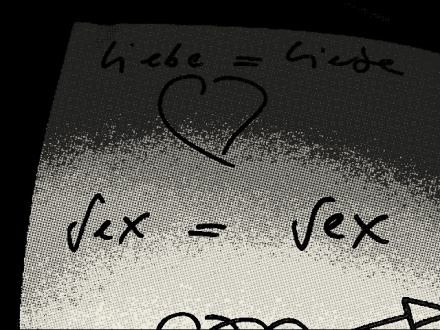 Liebe = Liebe
Sex = Sex